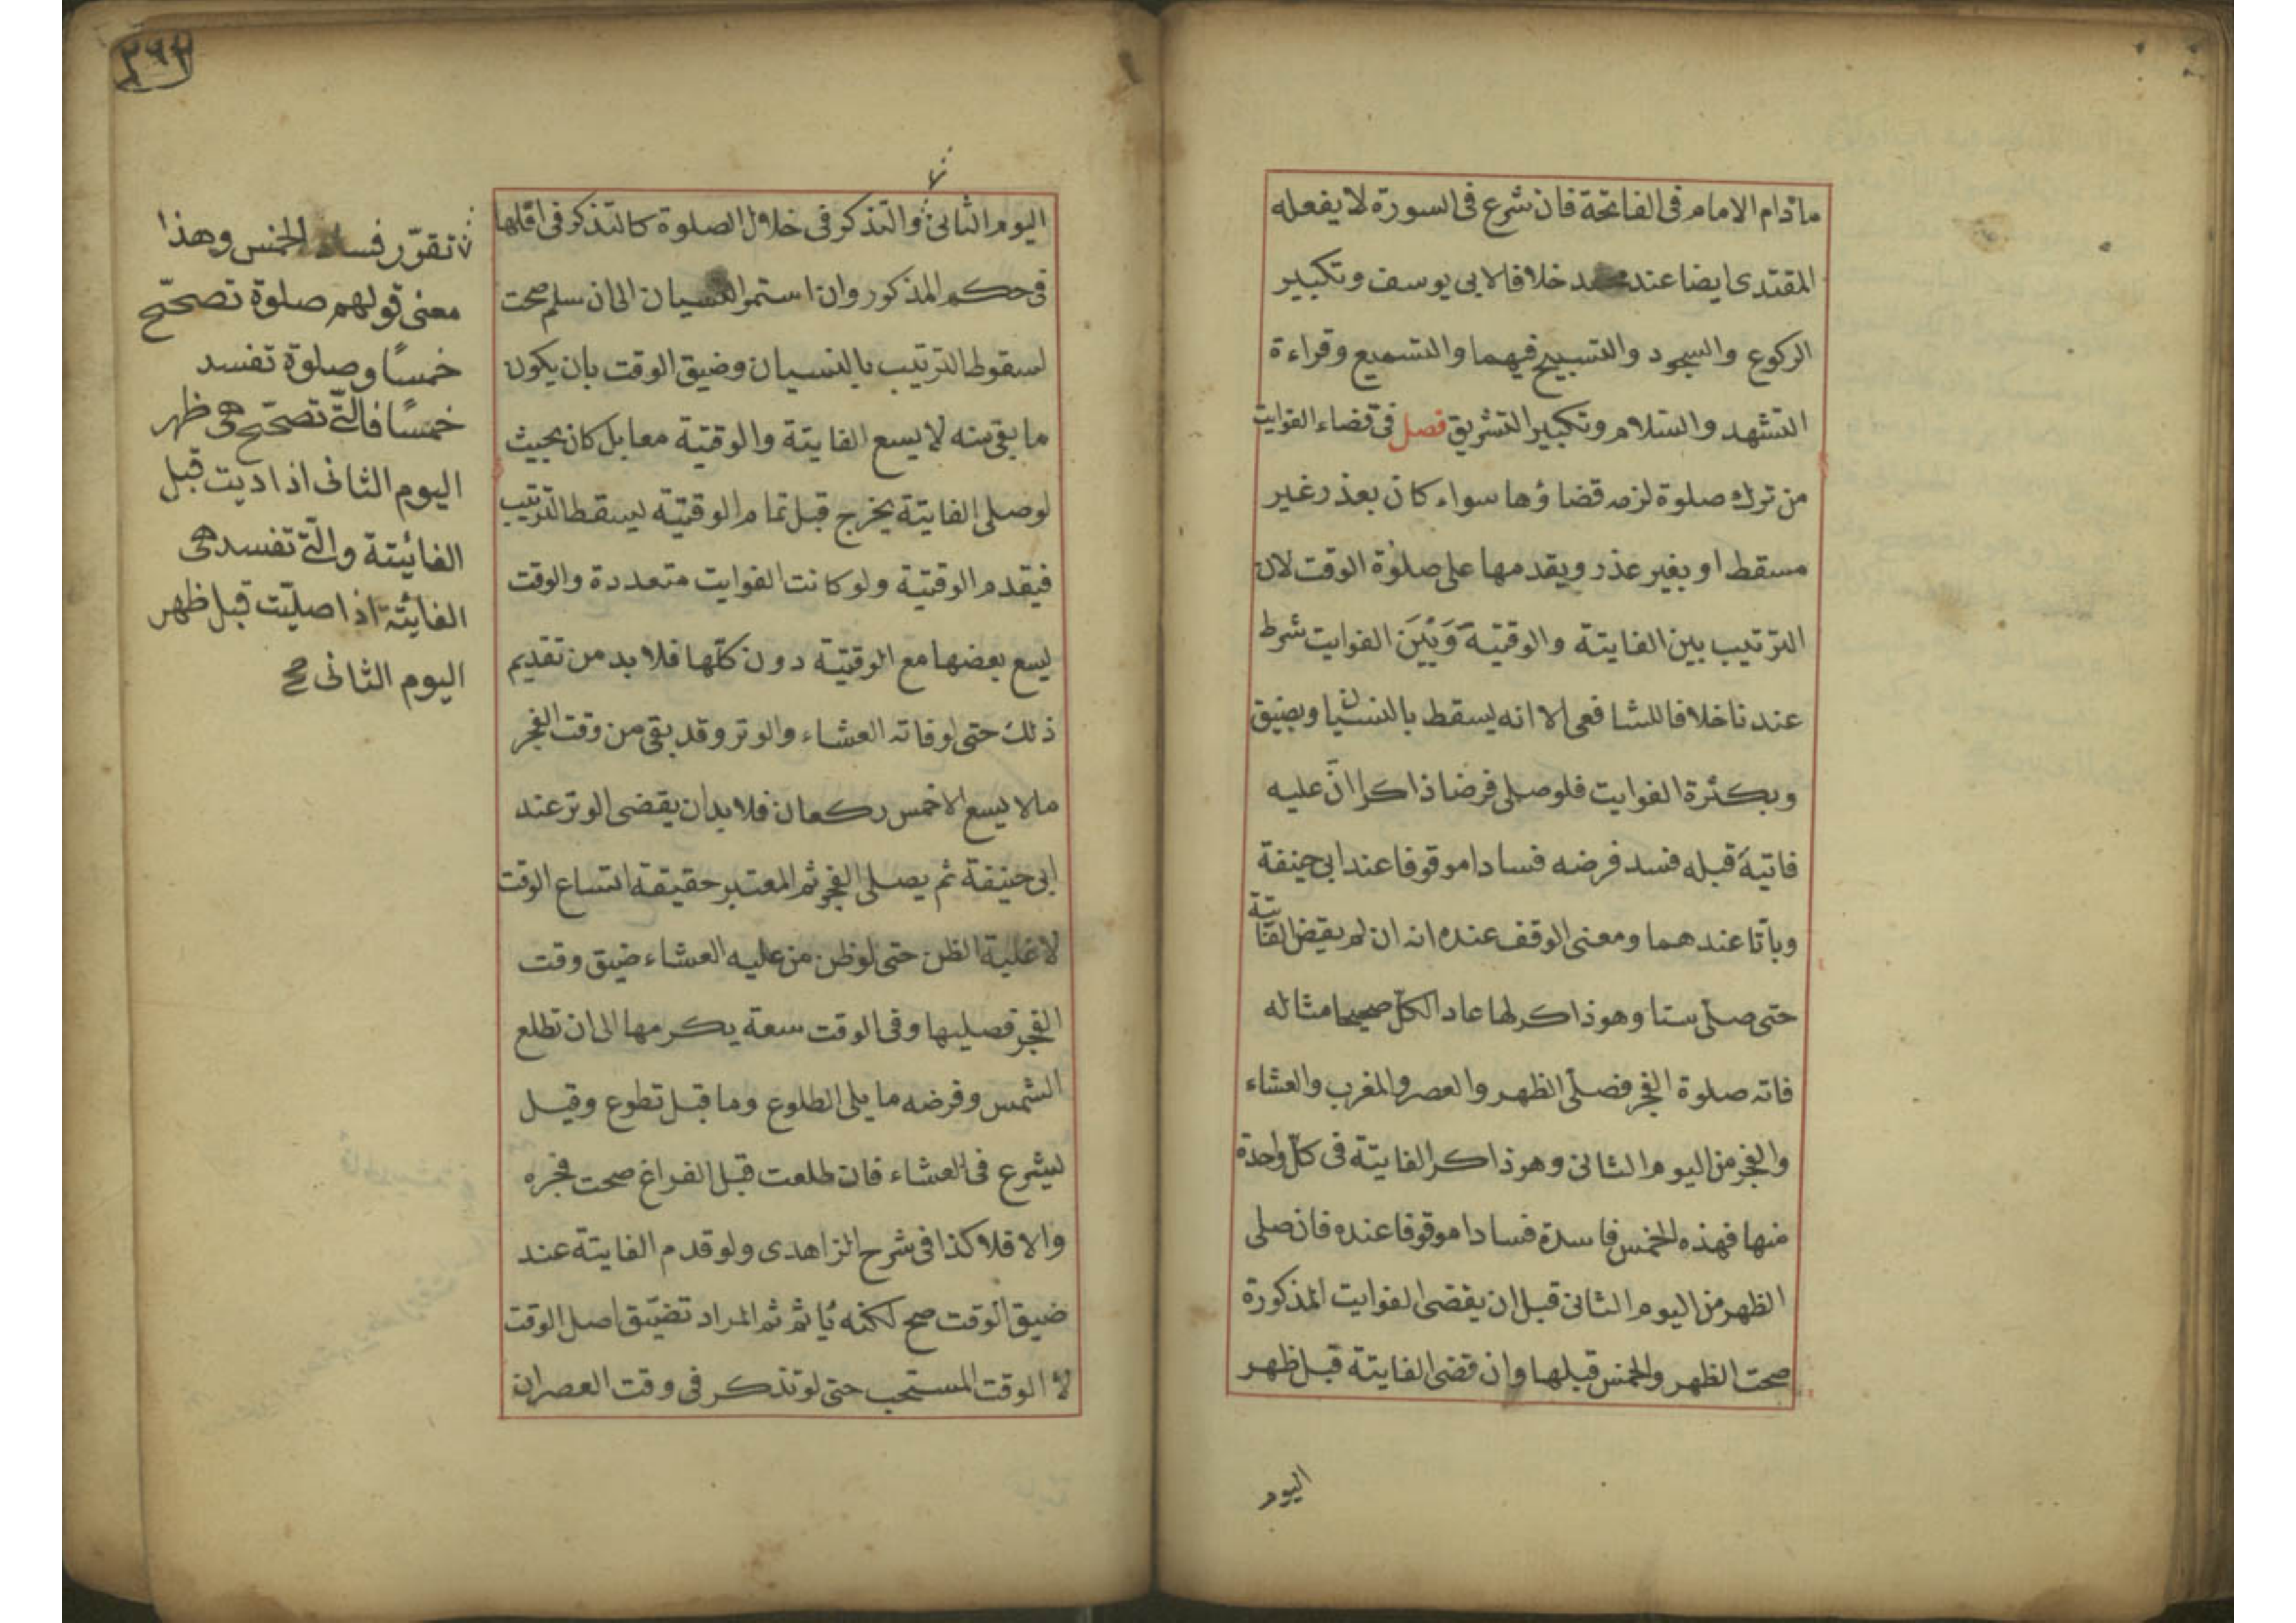 مادام الامام فى الفاتحة فان شرع فى السورة لا يفعله
المقتدى ايضا عند محمد خلافا لابى يوسف وتكبير
الركوع والسجود والتسبيح فيهما والتسميع وقراءة
التشهد والسلام وتكبير التشريق فصل فى قضاء الفوايت
من ترك صلوة لزمه قضاؤها سواء كان بعذر غير
مسقط او بغير عذر ويقدمها على صلوة الوقت لان
الترتيب بين الفايتة والوقتية وَبَيْنَ الفوايت شرط
عندنا خلافا للشافعى الا انه يسقط بالنسيان وبضيق
وبكثرة الفوايت فلو صلى فرضا ذاكرا انّ عليه
فاتية قبله فسد فرضه فسادا موقوفا عند ابى حنيفة
وباتا عندهما ومعنى الوقف عنده انه ان لم يقض الفايتة
حتى صلّى ستا وهو ذاكر لها عاد الكلّ صحيحا مثاله
فاته صلوة الفجر فصلّى الظهر والعصر والمغرب والعشاء
والفجر من اليوم الثانى وهو ذاكر الفايتة فى كلّ واحدة
منها فهذه الخمس فاسدة فسادا موقوفا عنده فان صلى
الظهر من اليوم الثانى قبل ان يقضى الفوايت المذكورة
صحت الظهر والخمس قبلها وان قضى الفايتة قبل ظهر
اليوم
٢٩٣
اليوم الثانى والتذكر فى خلال الصلوة كالتذكر فى اقلها
فى حكم المذكور وان استمر النسيان الى ان سلم صحت
لسقوط الترتيب بالنسيان وضيق الوقت بان يكون
ما بقى منه لا يسع الفايتة والوقتية معا بل كان بحيث
لو صلى الفايتة يخرج قبل تمام الوقتيّة ليسقط الترتيب
فيقدم الوقتية ولو كانت الفوايت متعددة والوقت
ليسع بعضها مع الوقتيّة دون كلّها فلا بد من تقديم
ذلك حتى لو فاته العشاء والوتر وقد بقى من وقت الفجر
مالا يسع الا خمس ركعات فلا بد ان يقضى الوتر عند
ابى حنيفة ثم يصلى الفجر ثم المعتبر حقيقة اتساع الوقت
لا غلبة الظن حتى لو ظن من عليه العشاء ضيق وقت
الفجر فصليها وفى الوقت سعة يكرمها الى ان تطلع
الشمس وفرضه ما يلى الطلوع وما قبل تطوع وقيل
ليشرع فى العشاء فان طلعت قبل الفراغ صحت فجره
والا فلا كذا فى شرح الزاهدى ولو قدم الفايتة عند
ضيق الوقت صح لكنه يأثم ثم المراد تضيّق اصل الوقت
لا الوقت المستحب حتى لو تذكر فى وقت العصر ان
تقرّر فساد الخمس وهذا
معنى قولهم صلوة تصحّح
خمسًا وصلوة تفسد
خمسًا فالتّى تصحّح هى ظهر
اليوم الثانى اذا اديت قبل
الفائيتة والتّى تفسد هى
الفائتة اذا صليّت قبل ظهر
اليوم الثانى